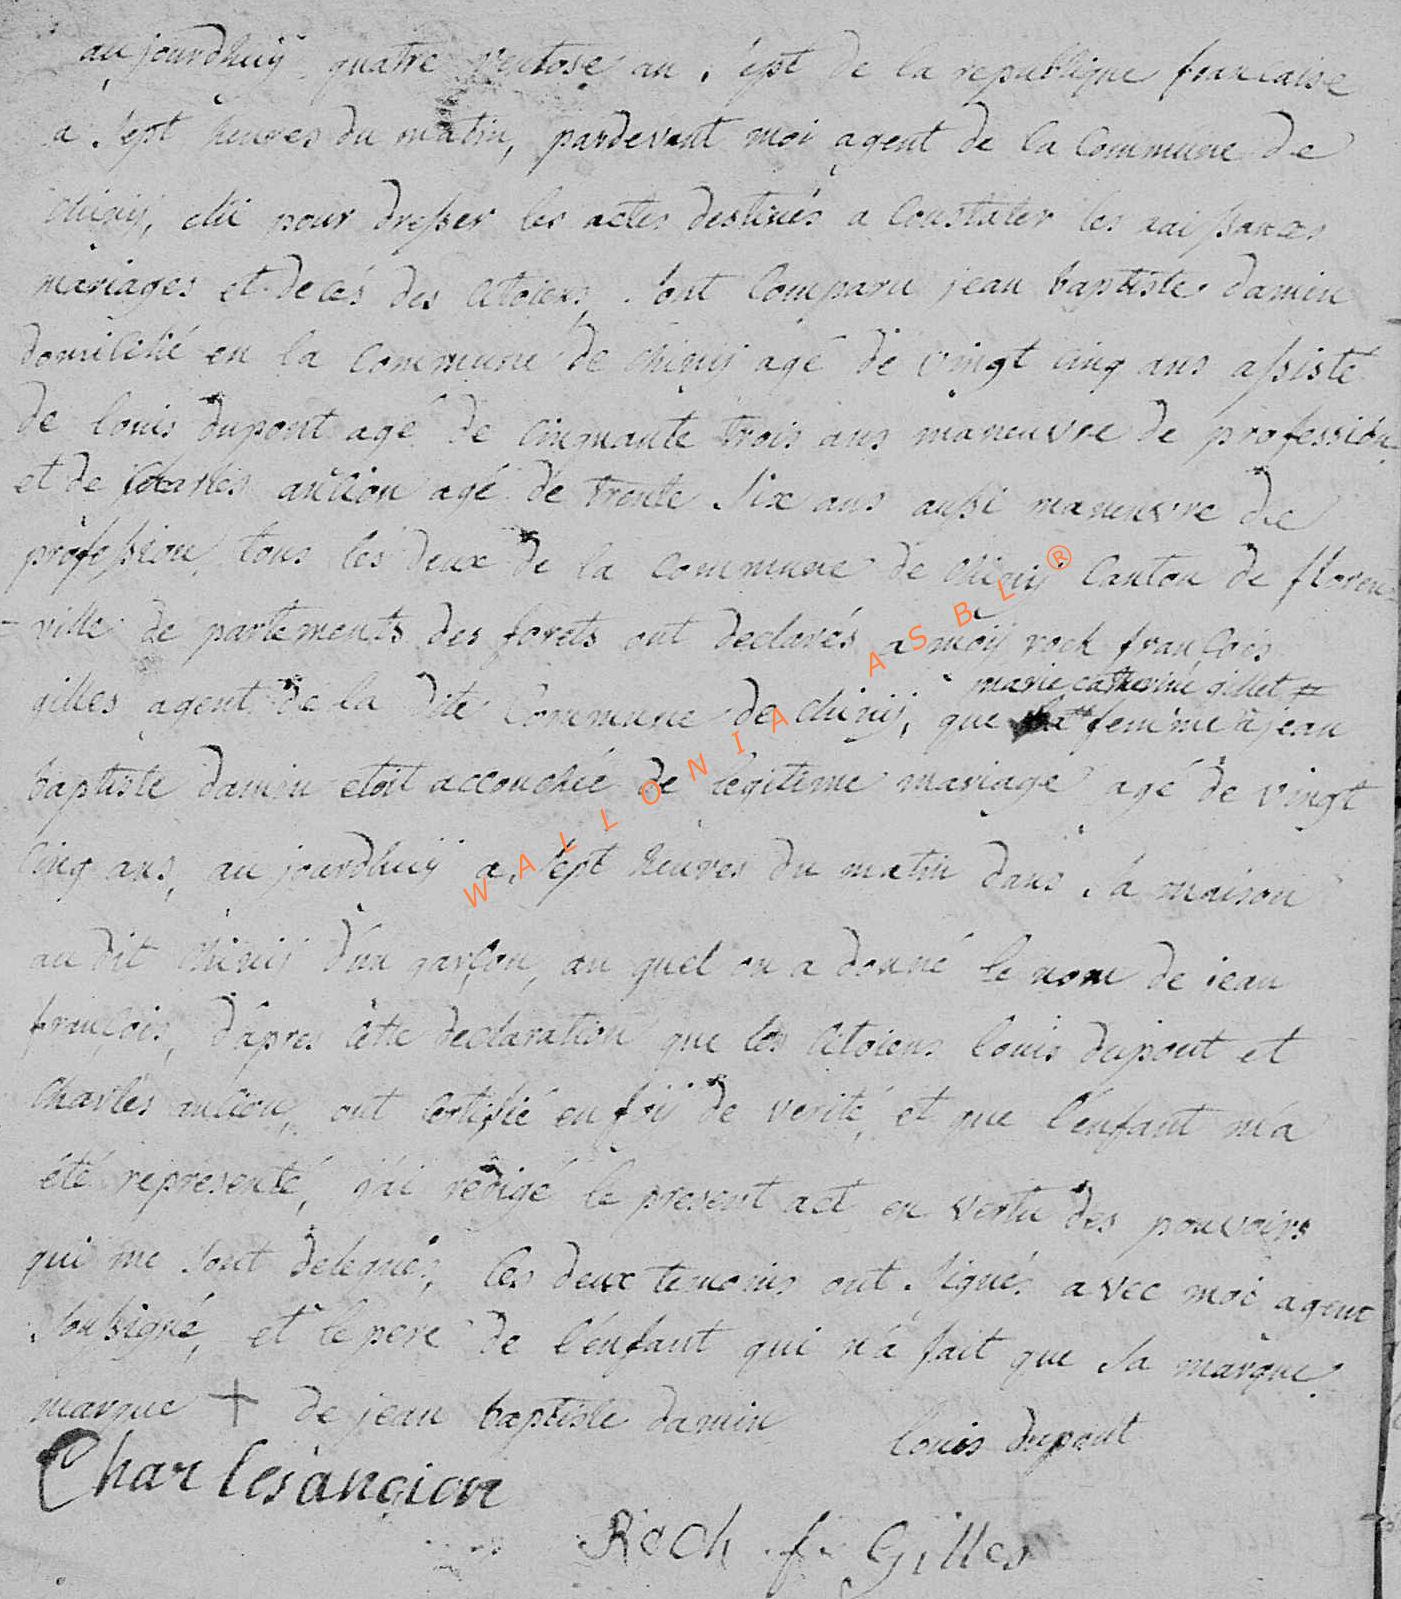 aujourdhuÿ quatre ventose an sept de la republique francaise
a sept heures du matin, pardevant moi agent de la Commune de
chinij, élu pour dresser les actes destinés a Constater les naissances
mariages et decés des Citoiens, sont Comparu jean baptiste damin
domicilié en la Commune de chinij agé de vingt cinq ans assisté
de louis dupont agé de cinquante trois ans maneuvre de profession
et de Charles ancion agé de trente six ans aussi maneuvre de
profession, tous les deux de la commune de chinij Canton de floren=
=ville departements des forets ont declarés a moij roch francois
marie catherine gillet #
gilles agent de la dite Commune de chinij, que la femme a jean
baptiste damin etoit accouchée de légitime mariage agé de vingt
cinq ans, aujourdhuÿ a sept heures du matin dans sa maison
au dit chinij d'un garçon, au quel on a donné le nom de jean
francois, d'apres cette declaration que les Citoiens louis dupont et
Charles ancion, ont certifié en foij de verité, et que l'enfant m'a
été representé, j'ai rédigé le present act en vertu des pouvoirs
qui me sont delegués, les deux temoins ont signés avec moi agent
soussigné, et le pere de l'enfant qui n'a fait que sa marque
marque + de jean baptiste damin
louis dupont
Charles ancion
Roch f. Gilles
WALLONIA ASBL ®